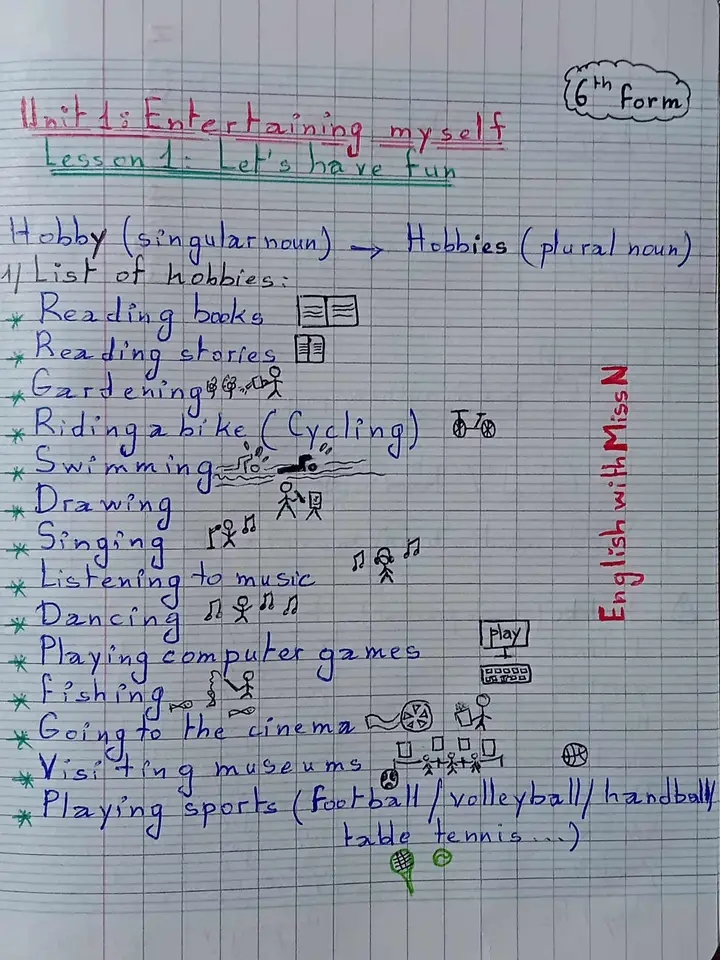 6th form
Unit 1: Entertaining myself
Lesson 1: Let's have fun
Hobby (singular noun) → Hobbies (plural noun)
1/ List of hobbies:
* Reading books
* Reading stories
* Gardening
* Riding a bike (Cycling)
* Swimming
* Drawing
* Singing
* Listening to music
* Dancing
* Playing computer games
play
* fishing
* Going to the cinema
* Visiting museums
* Playing sports (football/volleyball/handball/
table tennis...)
English with Miss N